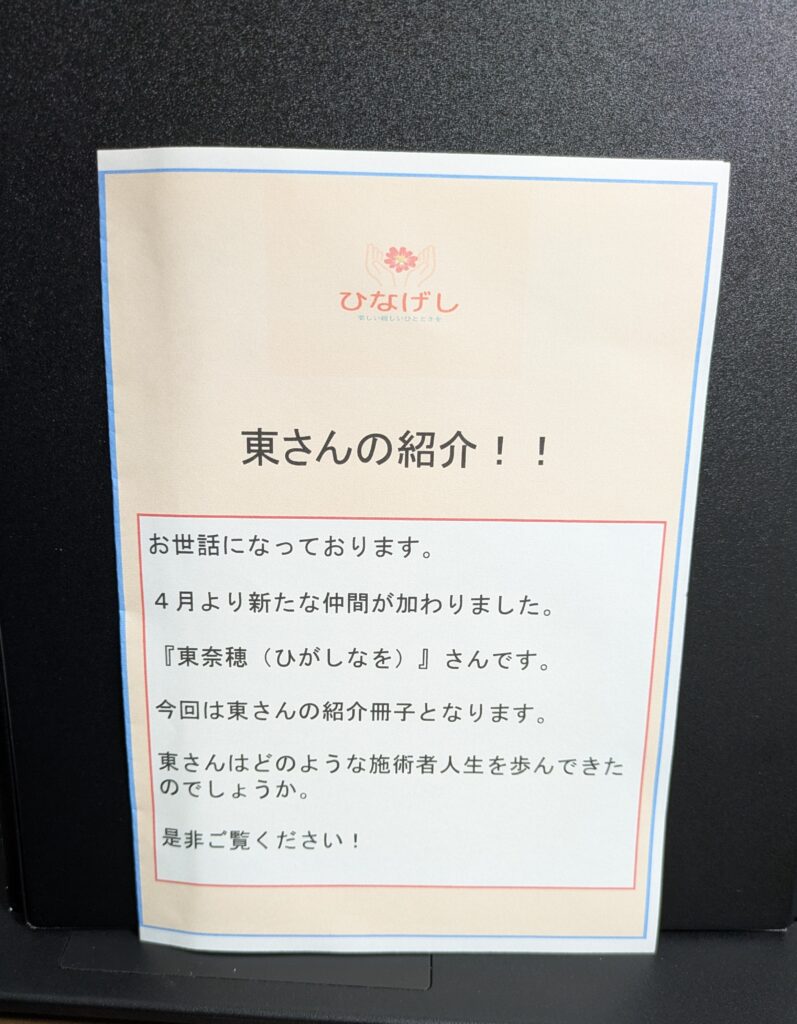 ひなげし
楽しい嬉しいひとときを
東さんの紹介！！
お世話になっております。
４月より新たな仲間が加わりました。
『東奈穂（ひがしなを）』さんです。
今回は東さんの紹介冊子となります。
東さんはどのような施術者人生を歩んできた
のでしょうか。
是非ご覧ください！